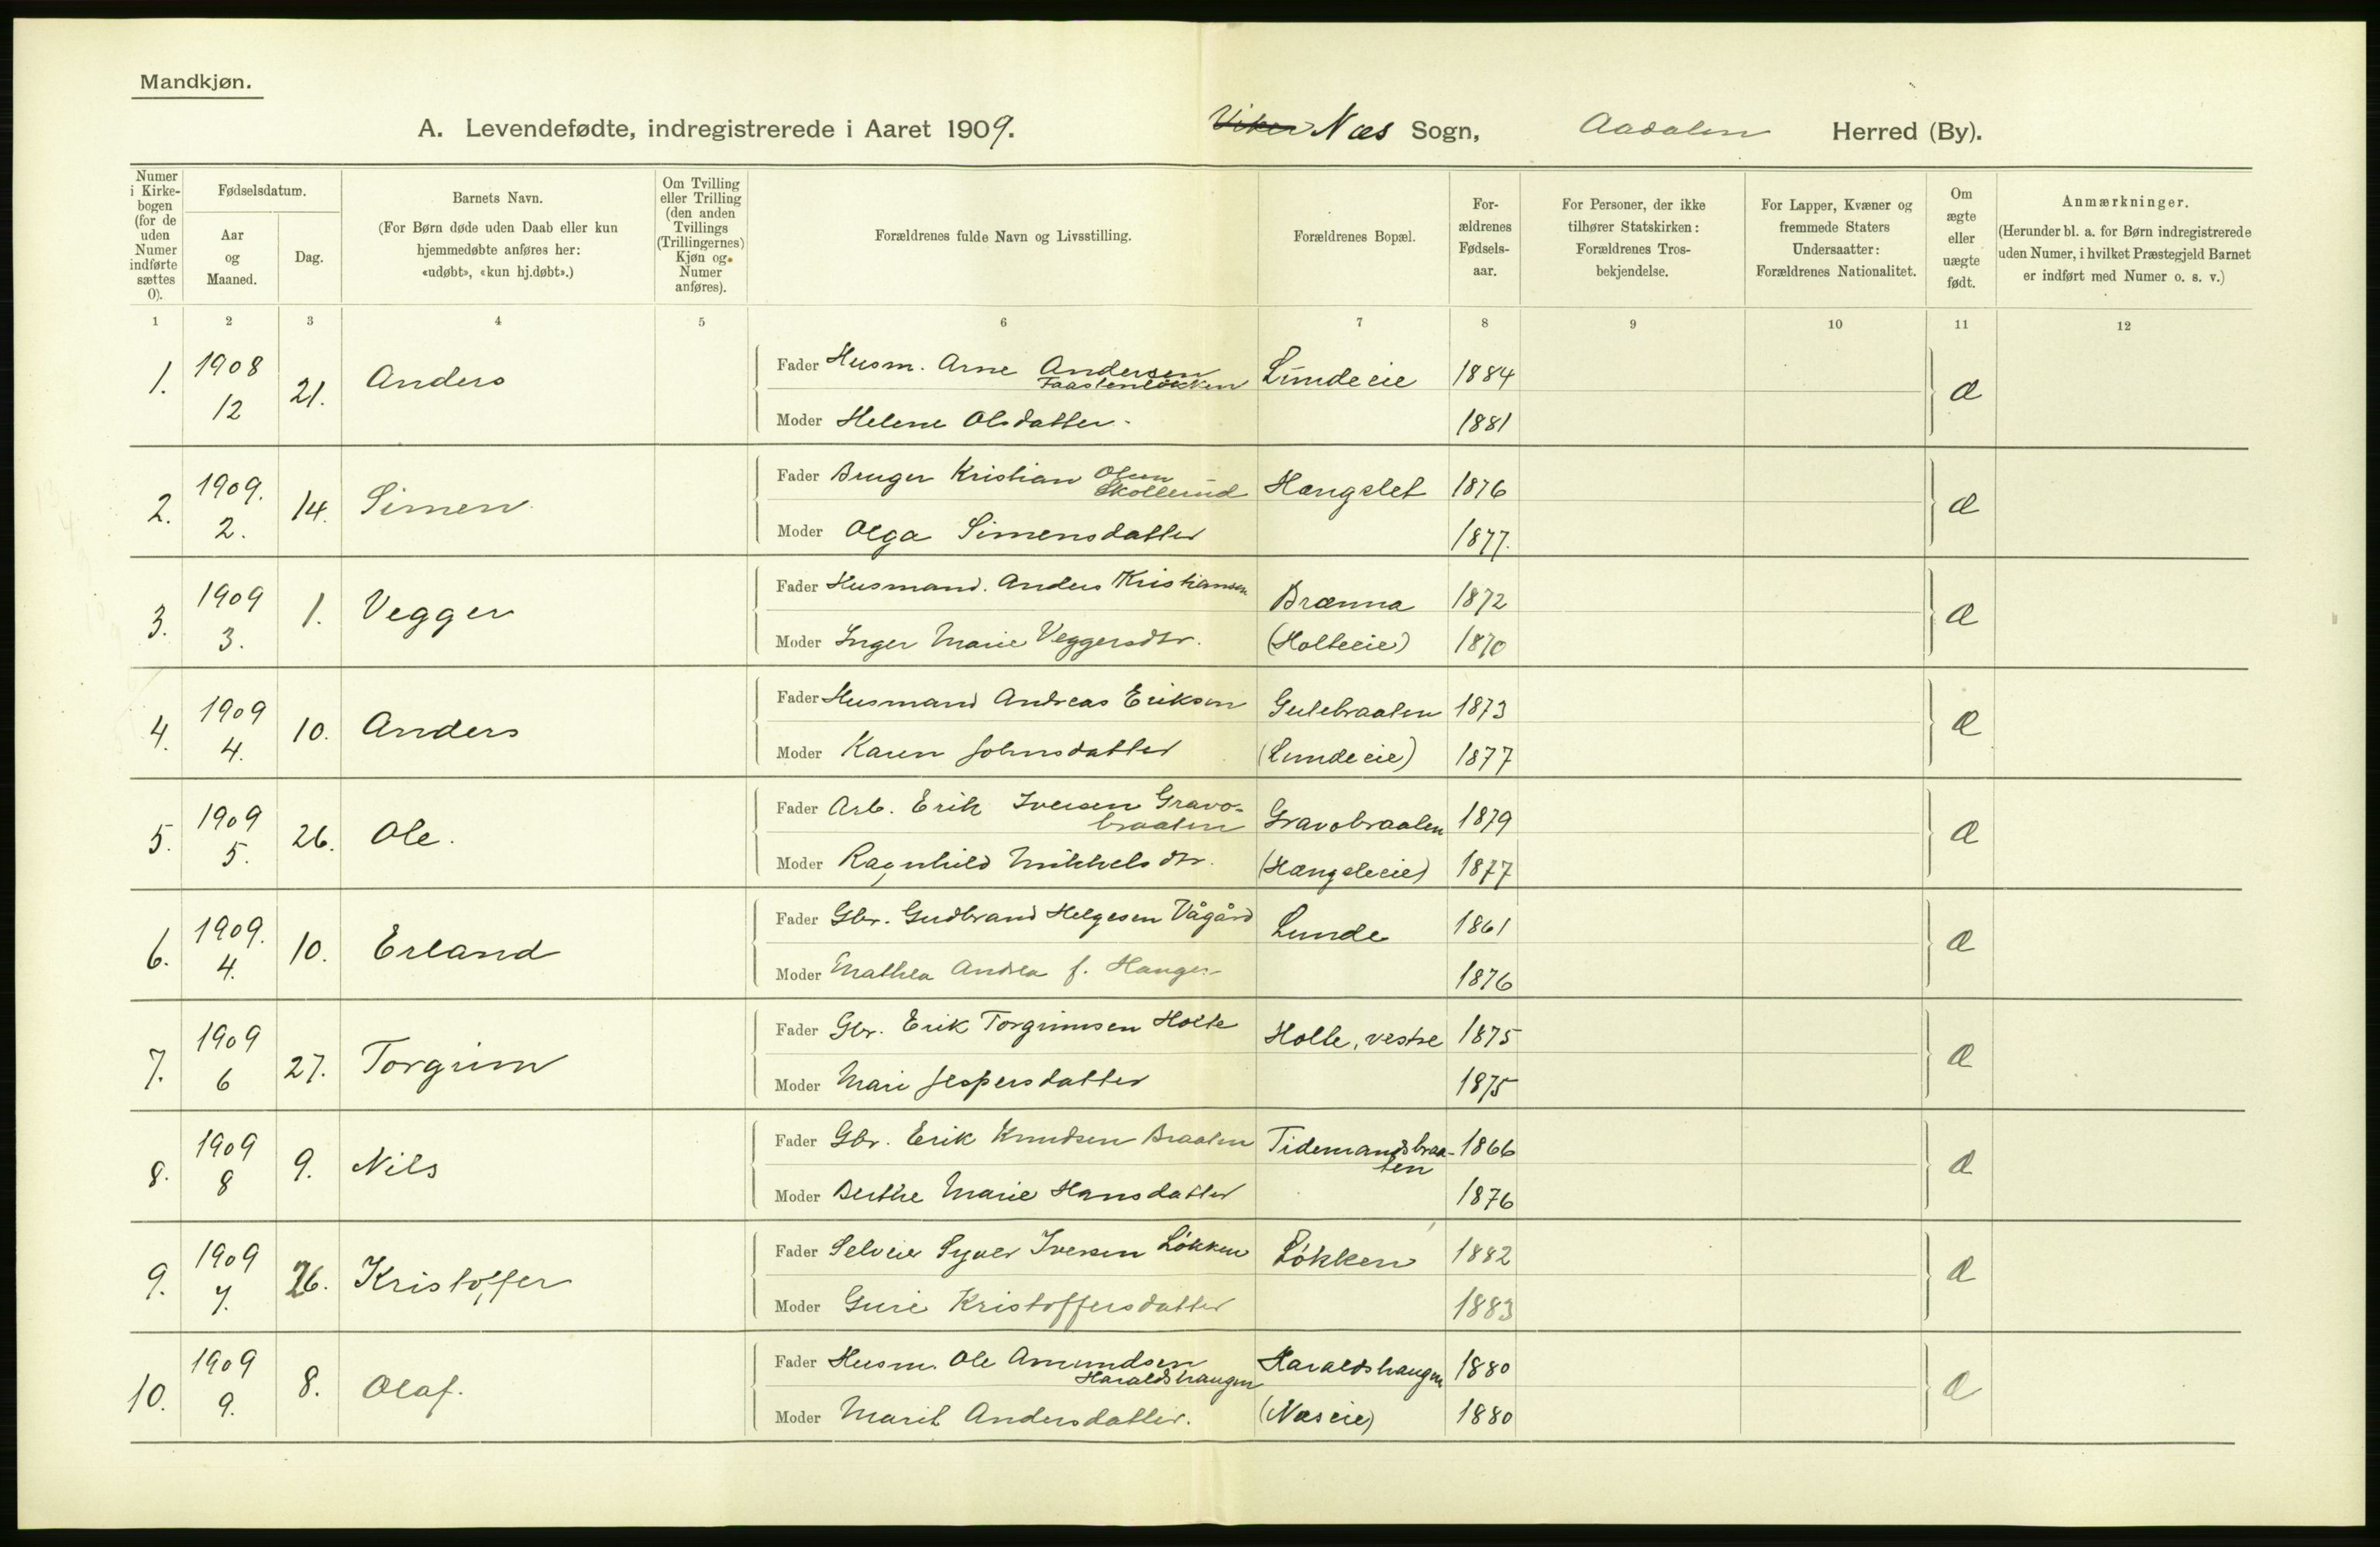 Mandkjøn.
A. Levendefødte, indregistrerede i Aaret 1909. Viker Næs Sogn, Aadalen Herred (By).
Numer i Kirkebogen (for de uden Numer indførte sættes 0).
Fødselsdatum.
Aar og Maaned.
Dag.
Barnets Navn.
(For Børn døde uden Daab eller kun hjemmedøbte anføres her: «udøbt», «kun hj.døbt».)
Om Tvilling eller Trilling (den anden Tvillings (Trillingernes) Kjøn og Numer anføres).
Forældrenes fulde Navn og Livsstilling.
Forældrenes Bopæl.
Forældrenes Fødselsaar.
For Personer, der ikke tilhører Statskirken: Forældrenes Trosbekjendelse.
For Lapper, Kvæner og fremmede Staters Undersaatter: Forældrenes Nationalitet.
Om ægte eller uægte født.
Anmærkninger.
(Herunder bl. a. for Børn indregistrerede uden Numer, i hvilket Præstegjeld Barnet er indført med Numer o. s. v.)
1 2 3 4 5 6 7 8 9 10 11 12
1. 1908 12 21. Anders
Fader Husm. Arne Andersen Faastenløkken Lundeeie 1884 æ
Moder Helene Olsdatter. 1881
2. 1909. 2. 14. Simen
Fader Bruger Kristian Olsen Skollerud Hængslet 1876 æ
Moder Olga Simensdatter 1877.
3. 1909 3. 1. Vegger
Fader Husmand. Anders Kristiansen Brænna 1872 æ
Moder Inger Marie Veggersdtr. (Holteeie) 1870
4. 1909 4. 10. Anders
Fader Husmand Andreas Eriksen Gulebraaten 1873 æ
Moder Karen Johnsdatter (Lundeeie) 1877
5. 1909 5. 26. Ole.
Fader Arb. Erik Iversen Gravobraaten Gravobraaten 1879 æ
Moder Ragnhild Mikkelsdtr. (Hængsleeie) 1877
6. 1909. 4. 10. Erland
Fader Gbr. Gudbrand Helgesen Vågård Lunde 1861 æ
Moder Mathea Andrea f. Hauger 1876
7. 1909 6 27. Torgrim
Fader Gbr. Erik Torgrimsen Holte Holte, vestre 1875 æ
Moder Mari Jespersdatter 1875
8. 1909 8 9. Nils
Fader Gbr. Erik Knudsen Braaten Tidemandsbraaten 1866 æ
Moder Berthe Marie Hansdatter 1876
9. 1909 7. 26. Kristoffer
Fader Selveier Syver Iversen Løkken Løkken 1882 æ
Moder Guri Kristoffersdatter 1883
10. 1909 9. 8. Olaf.
Fader Husm. Ole Amundsen Haraldshaugen Haraldshaugen 1880 æ
Moder Marit Andersdatter. (Næseie) 1880